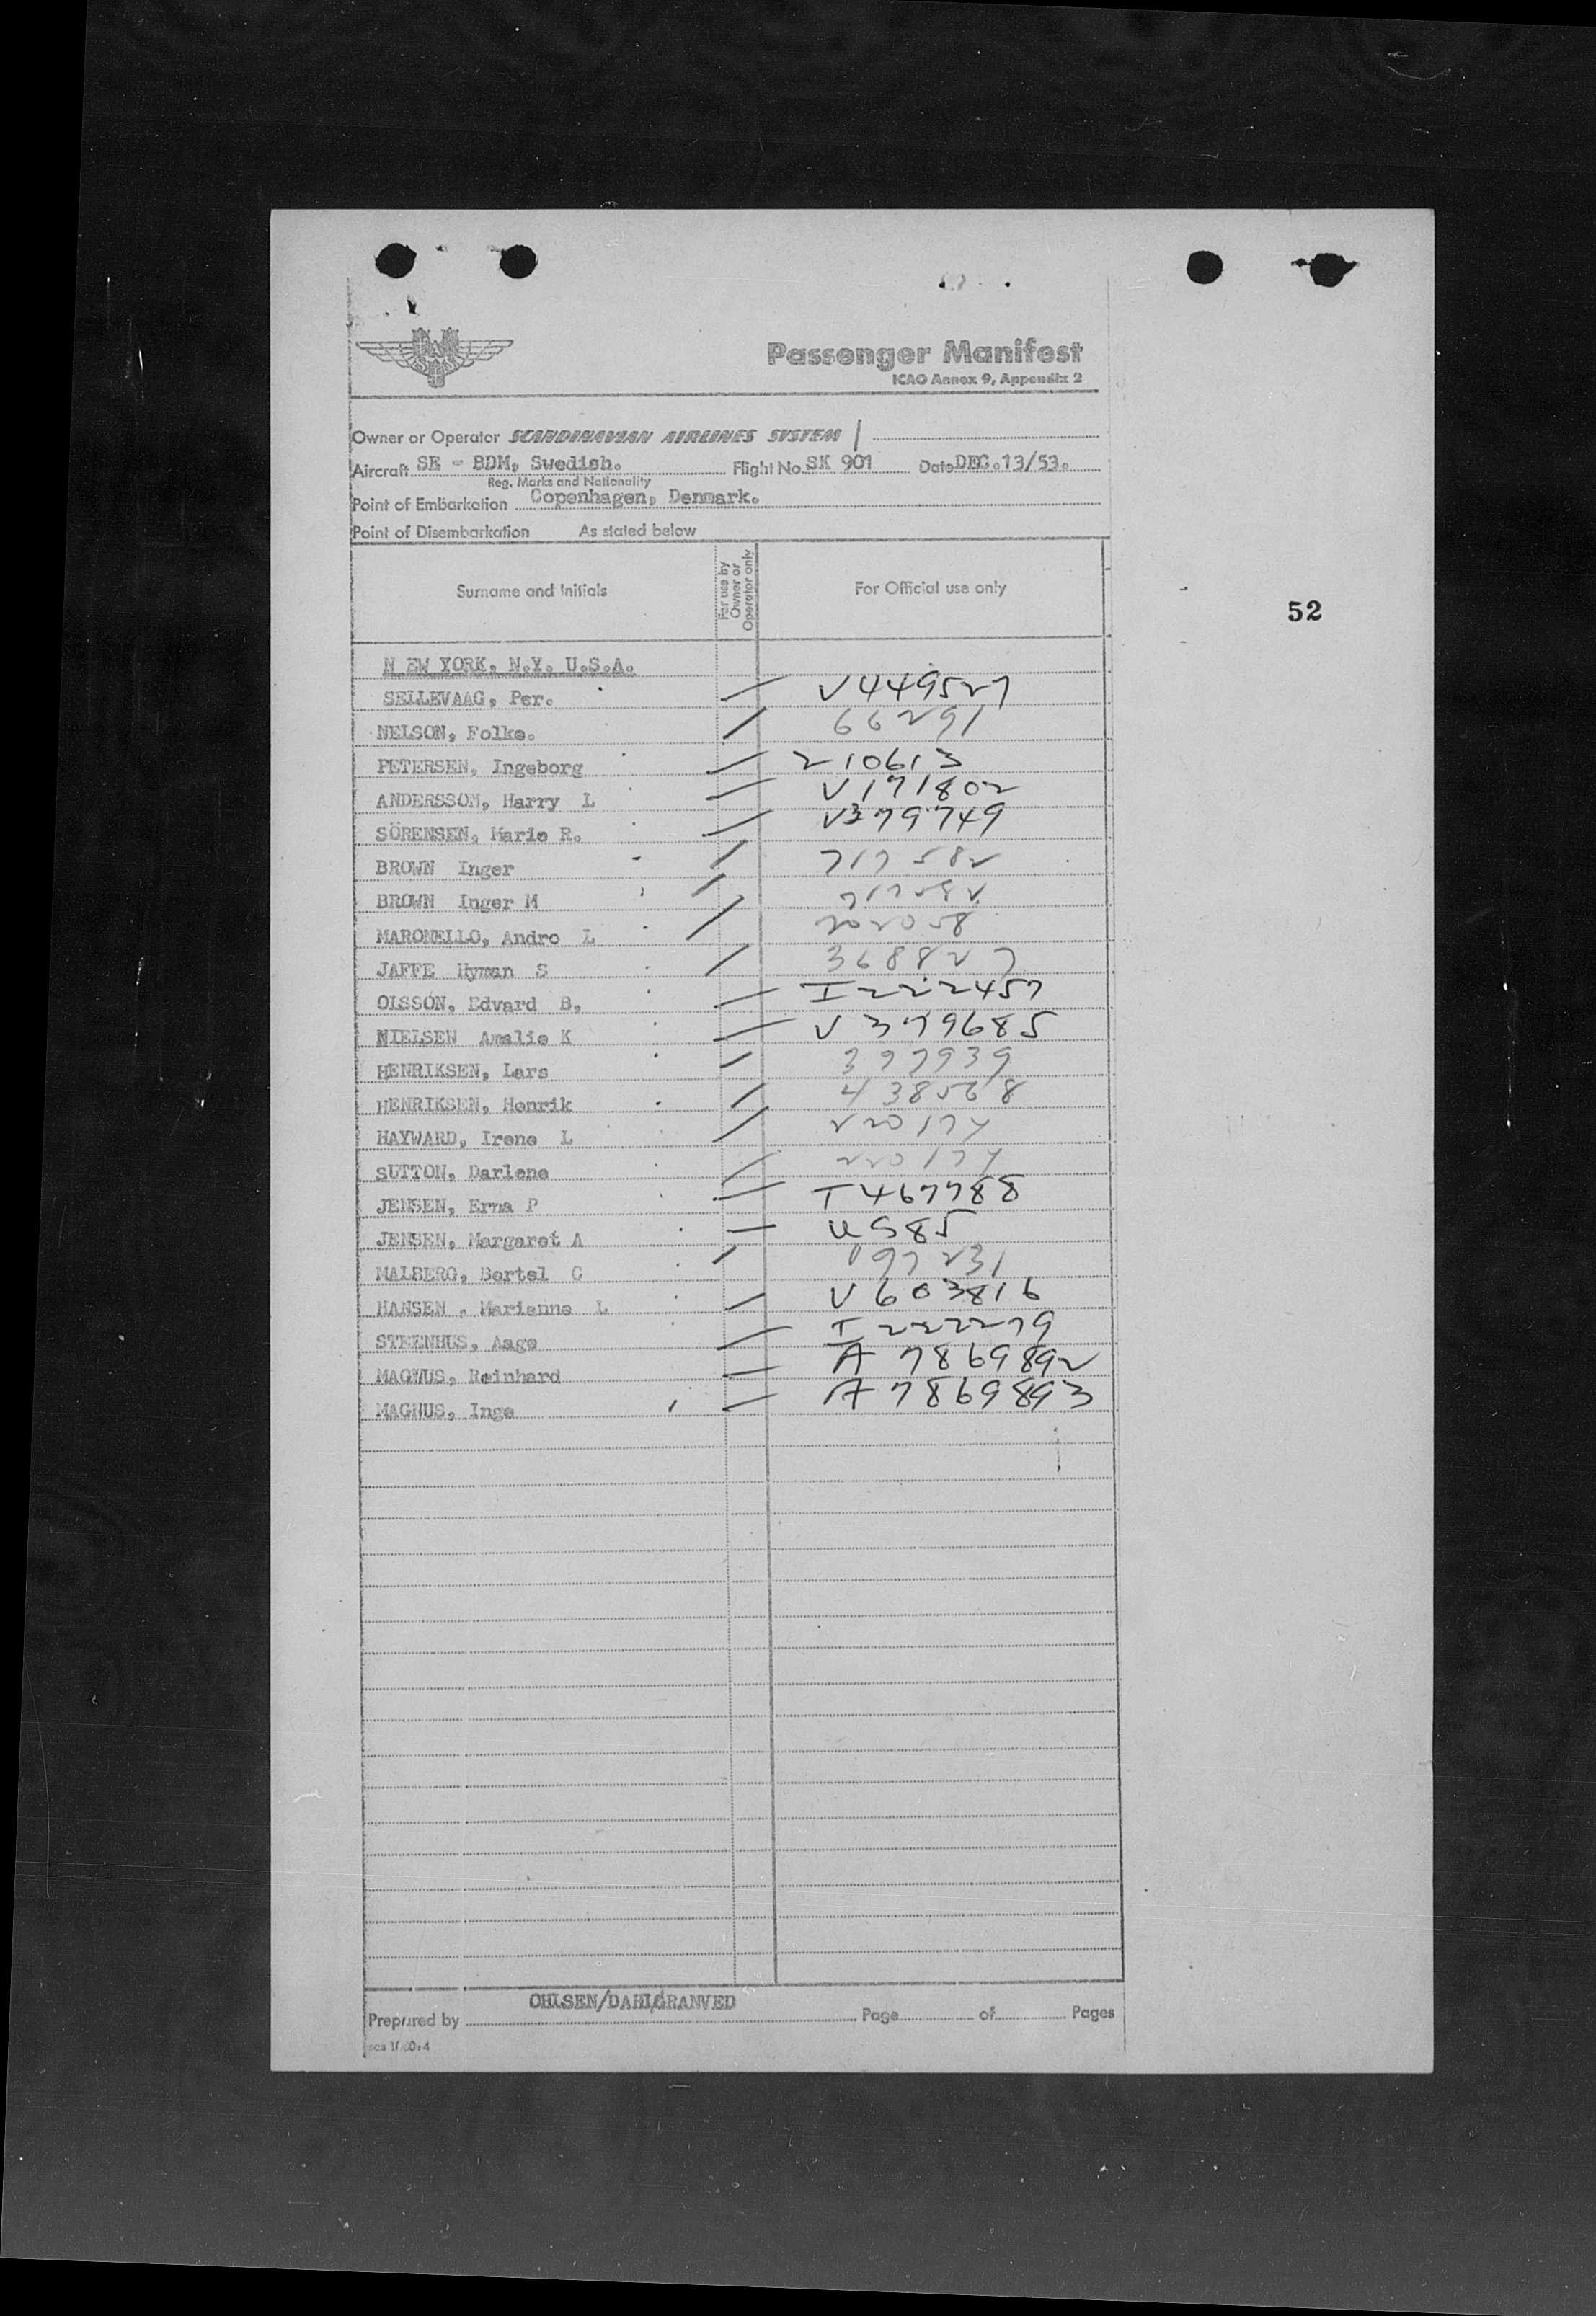 Passenger Manifest
ICAO Annex 9, Appendix 2
Owner or Operator SCANDINAVIAN AIRLINES SYSTEM
Aircraft SE - BDM, Swedish. Flight No. SK 901 Date DEC. 13/53.
Reg. Marks and Nationality
Point of Embarkation Copenhagen, Denmark.
Point of Disembarkation As stated below
Surname and Initials For use by Owner or Operator only For Official use only
52
N EW YORK, N.Y. U.S.A.
SELLEVAAG, Per. V449527
NELSON, Folke. 66291
PETERSEN, Ingeborg 210613
ANDERSSON, Harry L V171802
SÖRENSEN, Marie R. V379749
BROWN Inger 717582
BROWN Inger M 717582
MARONELLO, Andro L 202058
JAFFE Hyman S 368827
OLSSON, Edvard B, I222457
NIELSEN Amalie K V379685
HENRIKSEN, Lars 397939
HENRIKSEN, Henrik 438568
HAYWARD, Irene L 220174
SUTTON, Darlene 220174
JENSEN, Erna P T467788
JENSEN, Margaret A US85
MALBERG, Bertel C 197231
HANSEN , Marianne L V603816
STEENHUS, Aage I222279
MAGNUS, Reinhard A7869892
MAGNUS, Inge A7869893
OHLSEN/DAHL/GRANVED
Prepared by Page of Pages